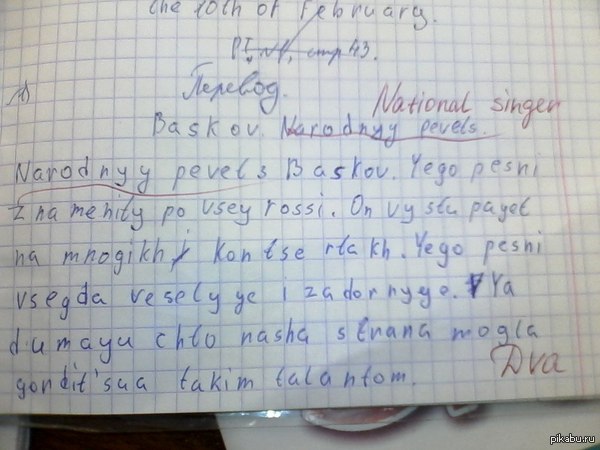 the 10th of February.
РТ, №1, стр 43.
1)
Перевод.
National singer
Baskov. Narodnyy pevets.
Narodnyy pevets Baskov. Yego pesni
znamenity po vsey rossi. On vystupayet
na mnogikh kontsertakh. Yego pesni
vsegda veselyye i zadornyye. Ya
dumayu chto nasha strana mogla
gordit'sua takim talantom.
Dva
pikabu.ru